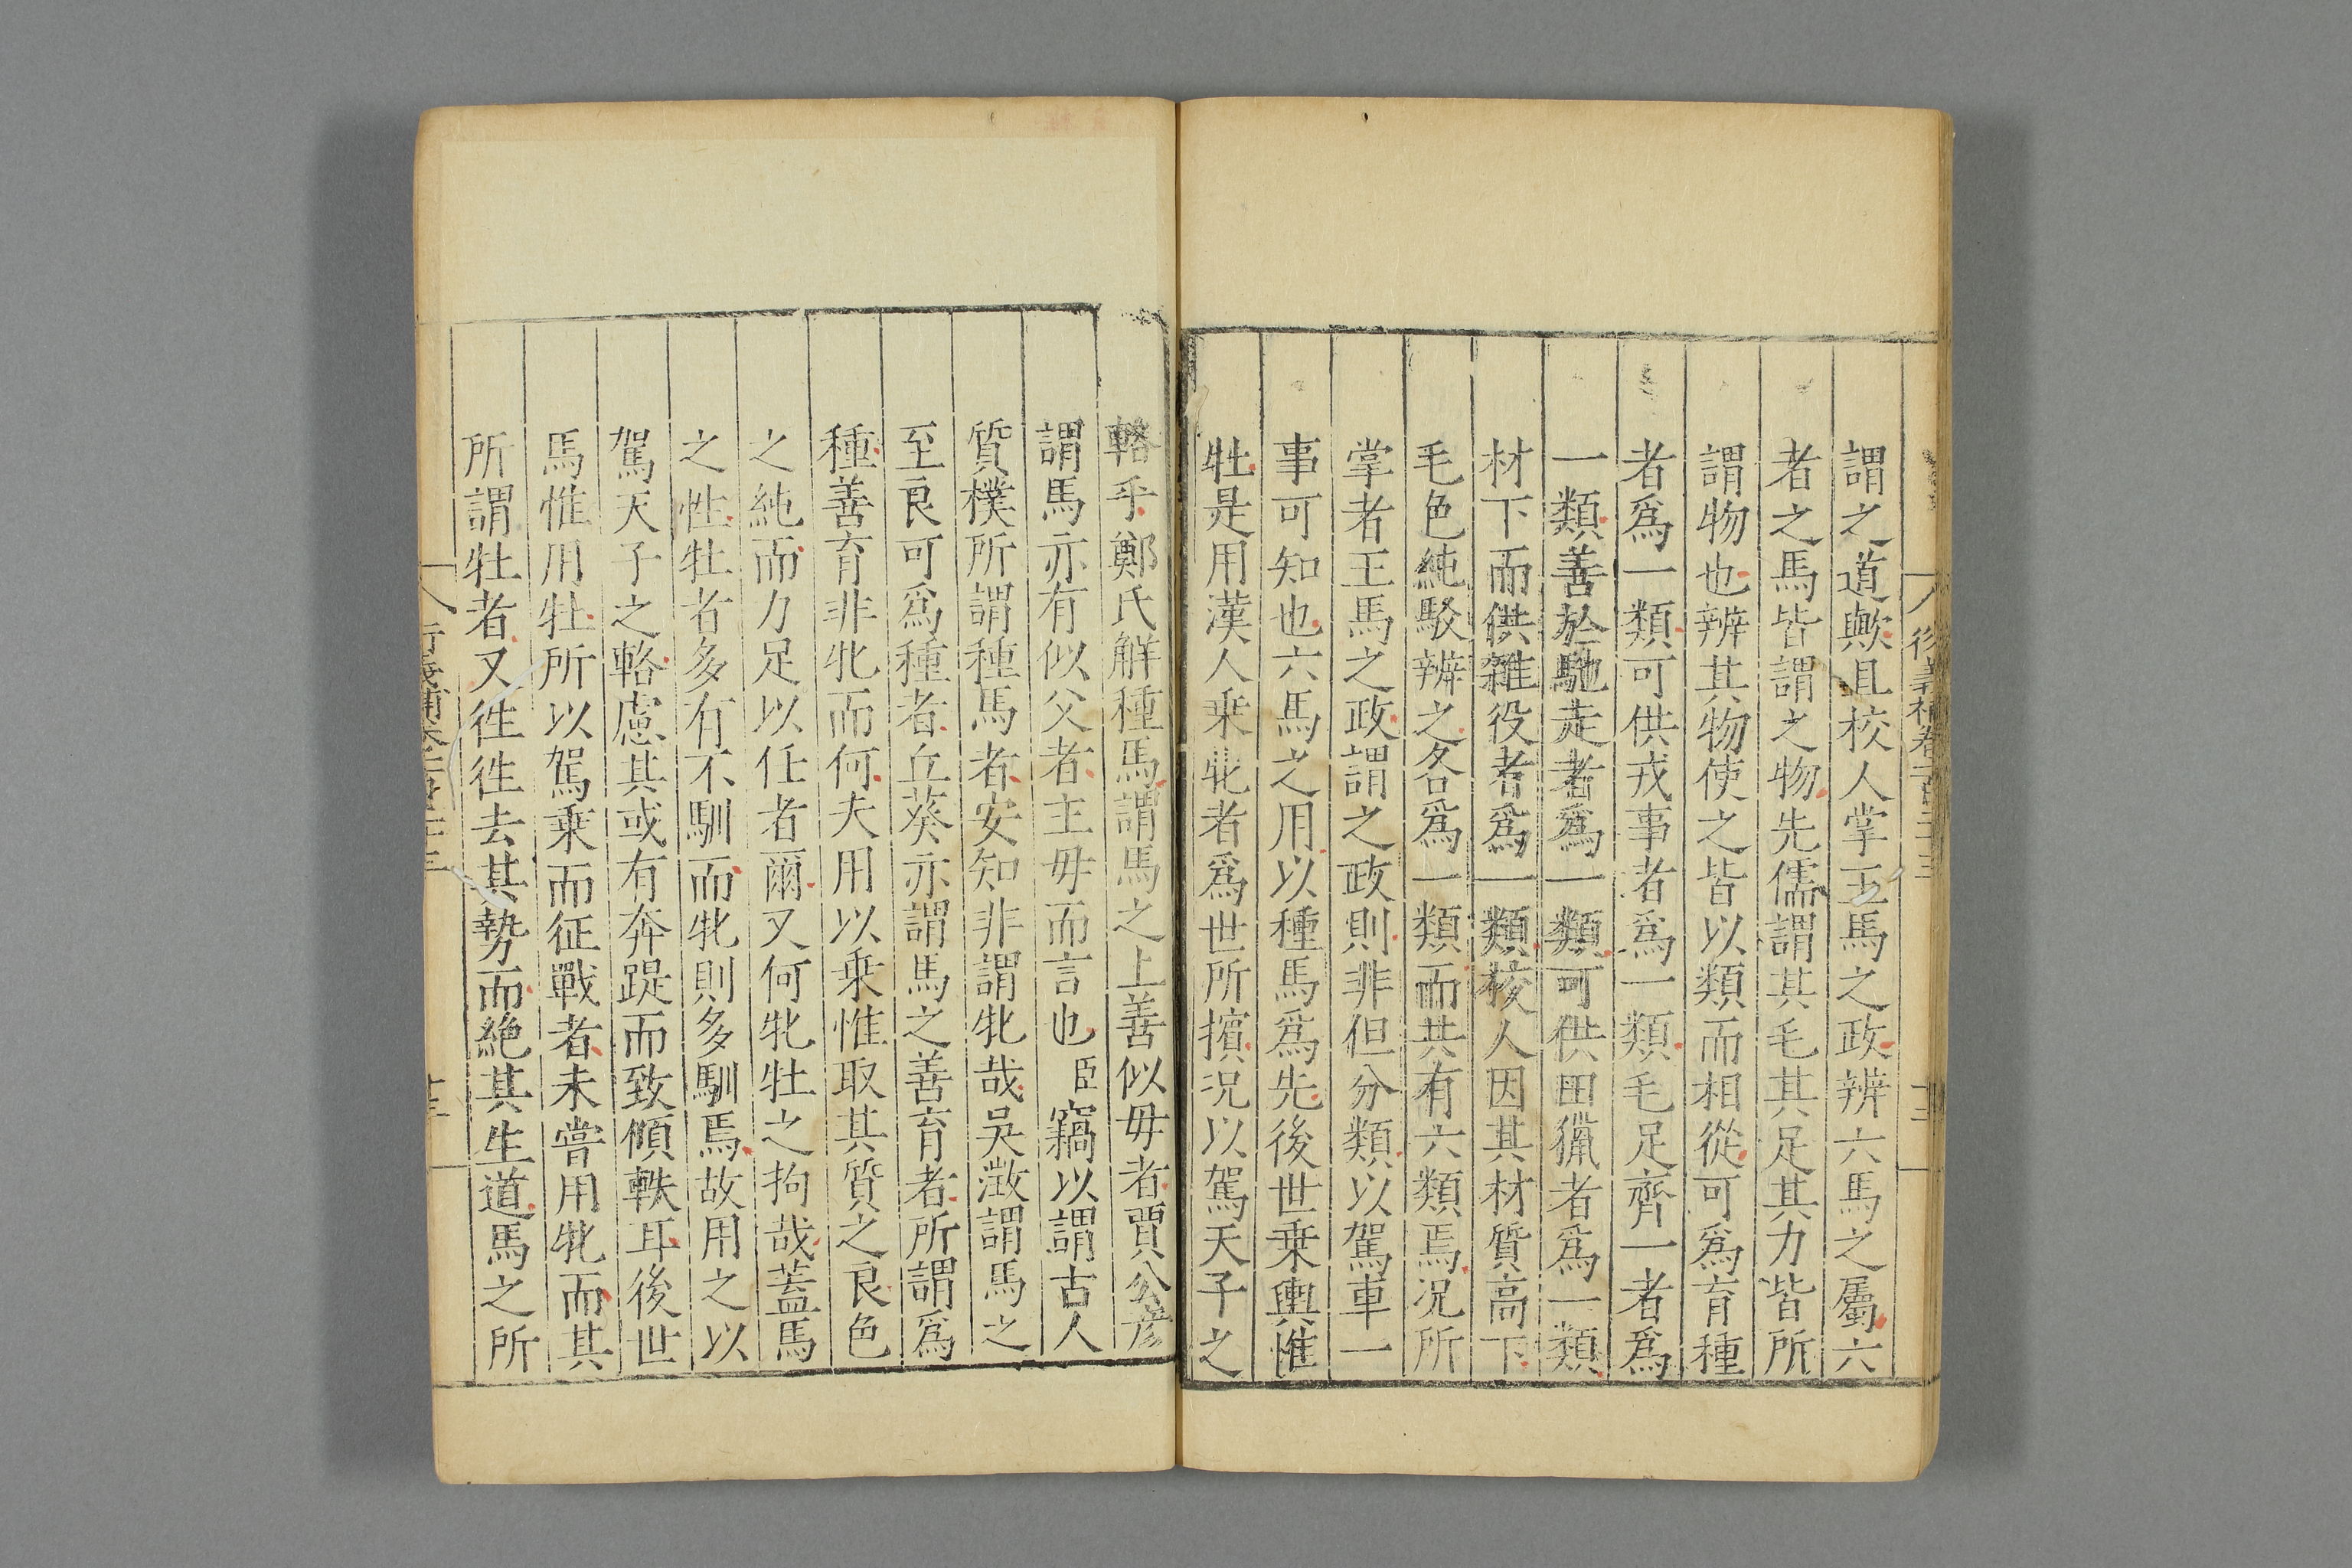 謂之道歟且校人掌王馬之政辨六馬之屬六
者之馬皆謂之物先儒謂其毛其足其力皆所
謂物也辨其物使之皆以類而相從可爲育種
者爲一類可供戎事者爲一類毛足齊一者爲
一類善於馳走者爲一類可供田獵者爲一類
材下而供雜役者爲一類校人因其材質高下
毛色純駁辨之各爲一類而共有六類焉况所
掌者王馬之政謂之政則非但分類以駕車一
事可知也六馬之用以種馬爲先後世乗輿惟
牡是用漢人乗牝者爲世所擯况以駕天子之
輅乎鄭氏解種馬謂馬之上善似毋者賈公彦
謂馬亦有似父者主毋而言也臣竊以謂古人
質樸所謂種馬者安知非謂牝哉吳澂謂馬之
至良可爲種者丘葵亦謂馬之善育者所謂爲
種善育非牝而何夫用以乗惟取其質之良色
之純而力足以任者爾又何牝牡之拘哉蓋馬
之性牡者多有不馴而牝則多馴焉故用之以
駕天子之輅慮其或有奔踶而致傾軼耳後世
馬惟用牡所以駕乗而征戰者未嘗用牝而其
所謂牡者又徃徃去其勢而絶其生道馬之所